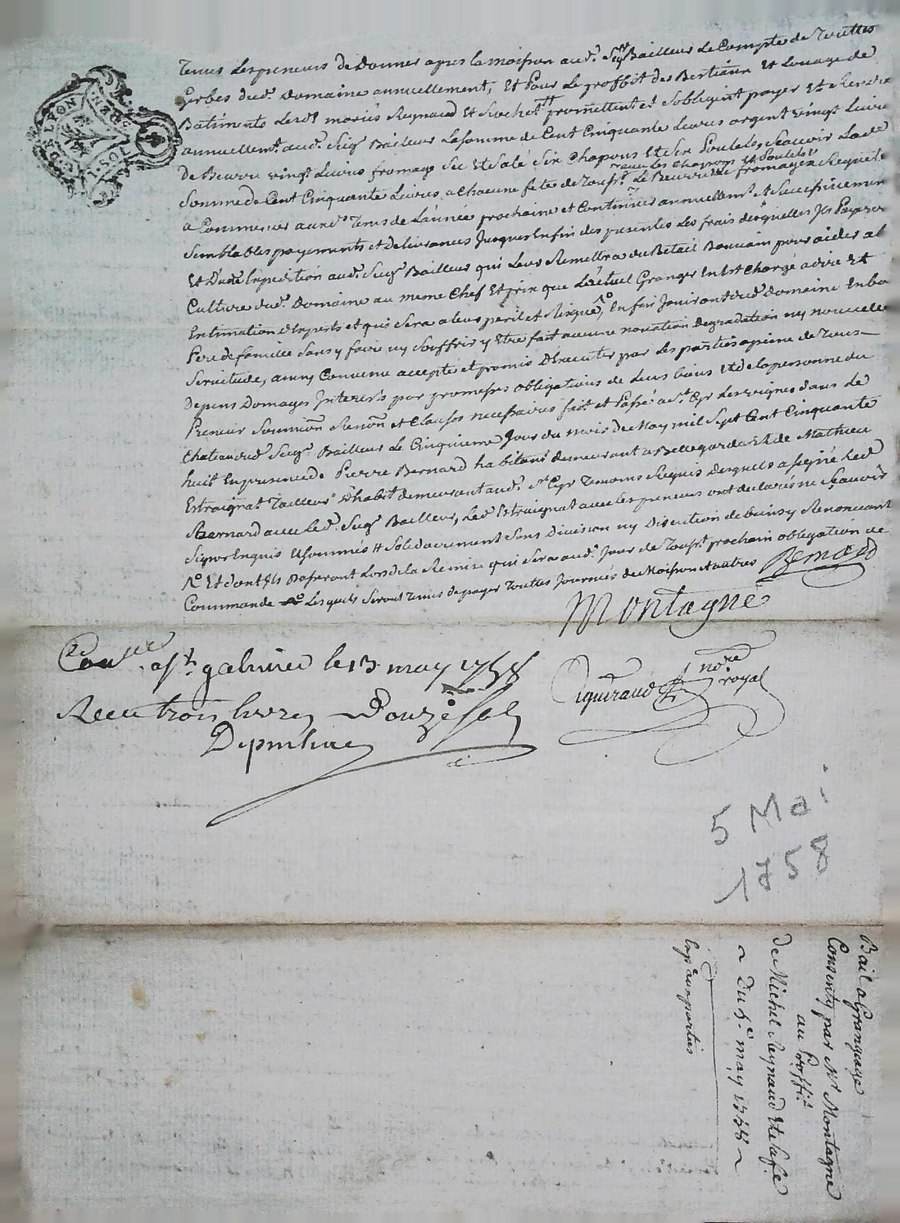 LYON
GEN DE
DEUX SOLS
Tenus Les preneurs de Donner apres la moisson aud.t Sieur Bailleur Le Compte de Touttes
Gerbes dud. Domaine annuellement, Et Pour Le proffit des Bestiaux Et Louage de
Batiments Lesd. mariés Reynaud Et promettent et sobligent payer Et
annuellemt. aud. Sieg. Bailleur La somme de Cent Cinquante Livres argent vingt Livres
de Beurre vingt Livres fromage Sec Et Salé Six Chapons Et Six Poulets, Scavoir Lad.
Somme de Cent Cinquante Livres a Chacune fete de Toust. Le Beurre Et fromage a Sa requete
tous les Chapons et Poulets
a Commencer aud. Tems de L'année prochaine et Continuer annuellemt. Et Successivement
Semblables payements et delivrances Jusques Enfin des presentes Les frais desquelles Ils Payeront
Et D'une Expedition aud. Sieg. Bailleur qui Leur Remettra du Betail Bouvain pour aider a la
Culture dud. Domaine au meme Chef Et prix que L'actuel Granger En Est Chargé a dire Et
Estimation d'Experts et qui Sera a leur peril et Risque, Enfin Jouiront dud. Domaine En bon
Pere de famille Sans y faire ny Souffrir y Etre fait aucune novation degradation ny nouvelle
Servitude, ainsy Convenu accepté et promis D'Executer par Les parties a peine de Tous
Depens Domages Interets par promesses obligations de Leurs biens Et de la personne du
Preneur Soumission Renon. et Clauses necessaires fait et Passé a St. Cyr Les vignes dans Le
Chateau dud. Sieg. Bailleur Le Cinquieme Jour du mois de May mil Sept Cent Cinquante
huit En presence de Pierre Bernard habitant demeurant a Bellegarde Et de Mathieu
Estraignat Tailleur d'habit demeurant aud. St. Cyr Temoins Requis desquels a Signé Led.
Bernard avec Led. Sieg. Bailleur, Led. Estraignat avec Les preneurs ont declaré ne Scavoir
Signer Enquis Et Sommés # Solidairement Sans Division ny Discution de biens y Renoncant
Et dont Ils Passeront Lors de la Remise qui Sera aud. Jour de Toust. prochain obligation de
Commande Lesquels Seront Tenus de payer Touttes Journées de Moisson et autres
Bernard
Montagne
Con.lé a St. galmier le 13 may 1758
Recu trois livres Douze Sols
Depinhac
Piquiraud nore royal
5 Mai
1758
Bail a Grangeage
Consenty par Mr. Montagne
au Proffit
de Michel Reynaud Et Sa fe.
~ Du 5e. may 1758 ~
Expn. aux parties